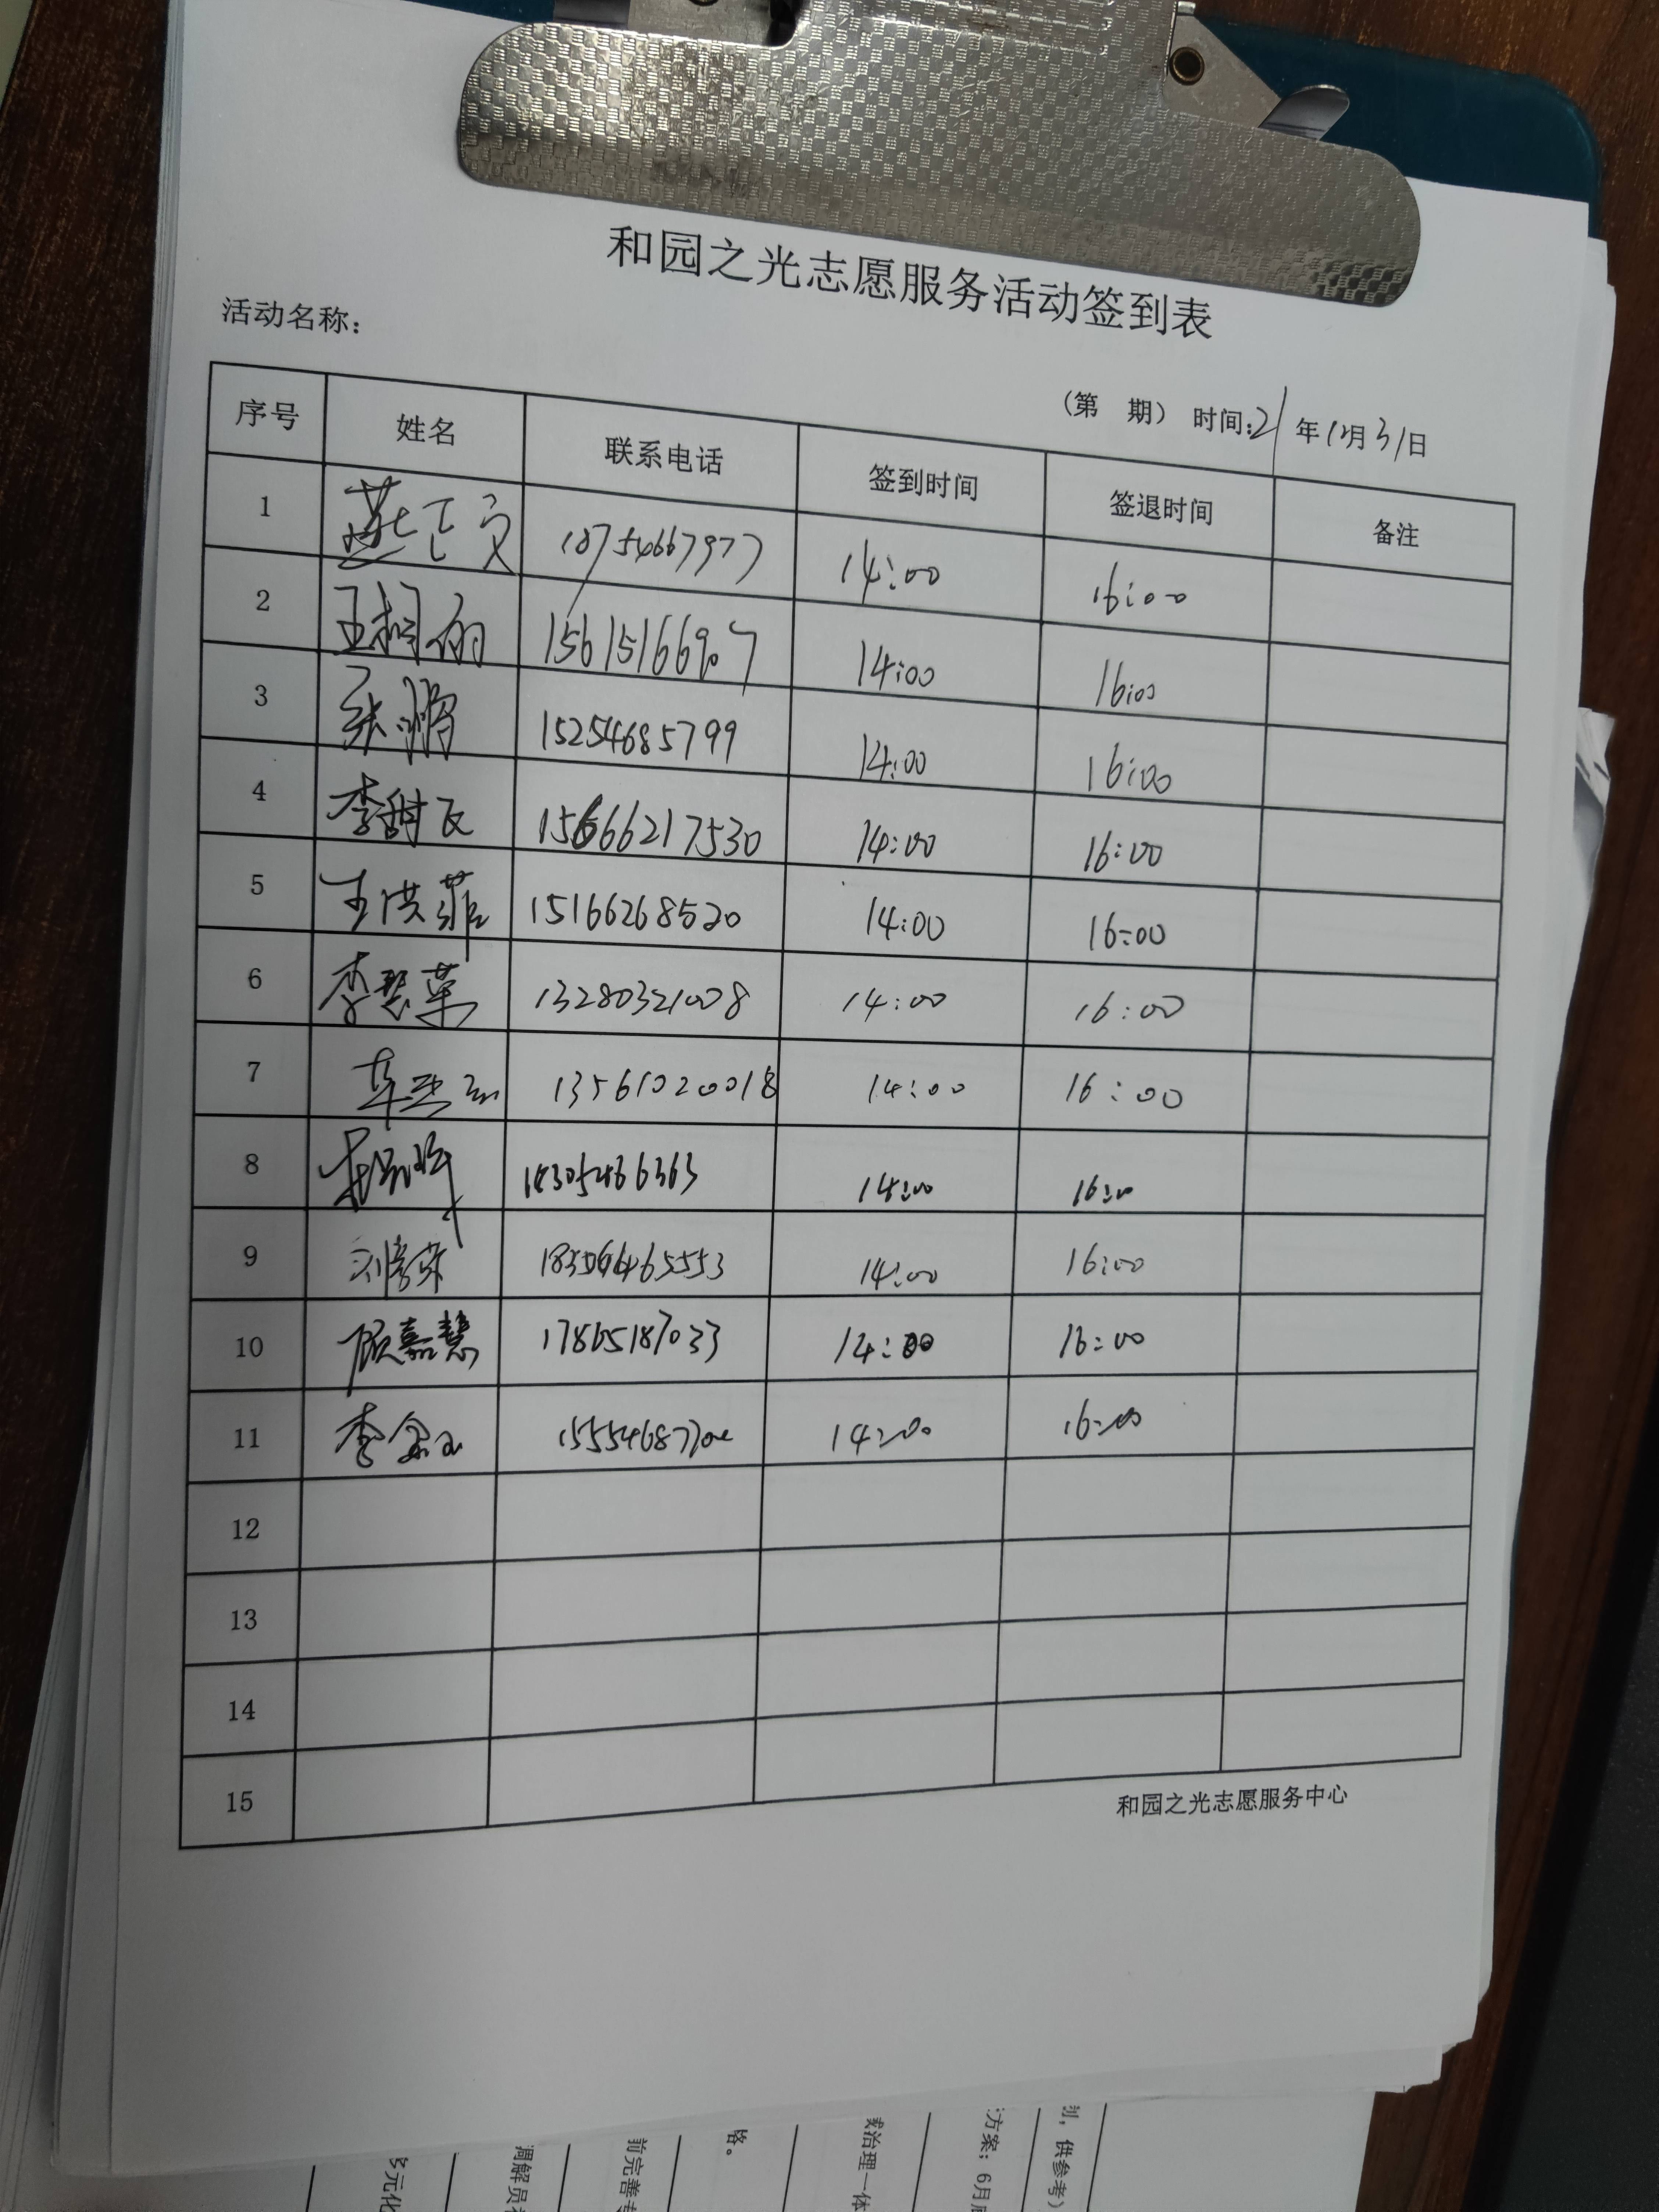 和园之光志愿服务活动签到表
活动名称：
（第 期） 时间：21年12月31日
序号 姓名 联系电话 签到时间 签退时间 备注
1 18754667977 14:00 16:00
2 15615166907 14:00 16:00
3 张鹏 15254685799 14:00 16:00
4 李甜瓦 15666217530 14:00 16:00
5 王洪菲 15166268520 14:00 16:00
6 李慧英 13280321008 14:00 16:00
7 13561020018 14:00 16:00
8 14:00 16:00
9 14:00 16:00
10 顾嘉慧 17865187033 14:00 16:00
11 14:00 16:00
12
13
14
15
和园之光志愿服务中心
多元化
调解员
前完善
络。
治理一体
方案；6月
供参考）